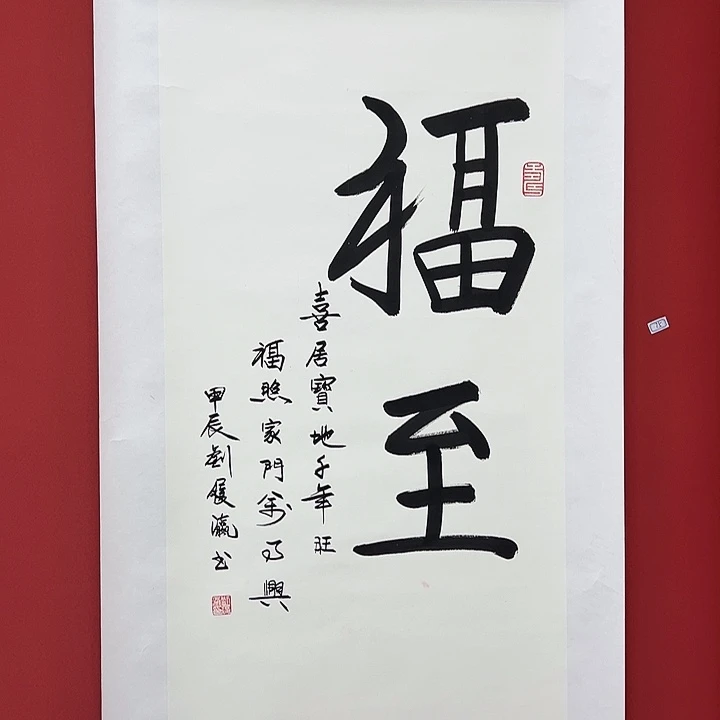 福至
喜居寶地千年旺
福照家門萬事興
甲辰劉展瀛書